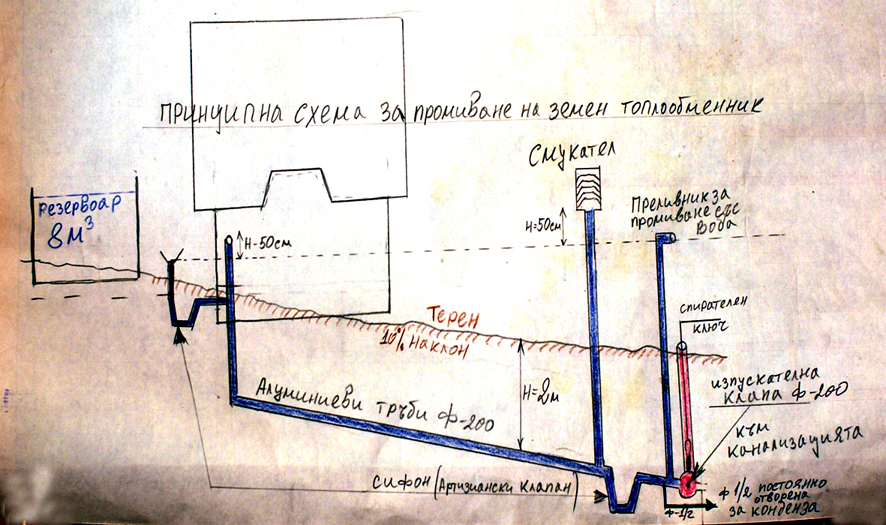 ПРИНЦИПНА СХЕМА ЗА ПРОМИВАНЕ НА ЗЕМЕН ТОПЛООБМЕННИК
СМУКАТЕЛ
РЕЗЕРВОАР
8 м³
H-50см
H=50см
ПРЕЛИВНИК ЗА
ПРОМИВАНЕ СЪС
ВОДА
СПИРАТЕЛЕН
КЛЮЧ
ТЕРЕН
10% НАКЛОН
H=2м
ИЗПУСКАТЕЛНА
КЛАПА Ф-200
АЛУМИНИЕВИ ТРЪБИ Ф-200
КЪМ
КАНАЛИЗАЦИЯТА
СИФОН (АРТИЗИАНСКИ КЛАПАН)
Ф 1/2 ПОСТОЯННО
ОТВОРЕНА
ЗА КОНДЕНЗА
Ф-1/2